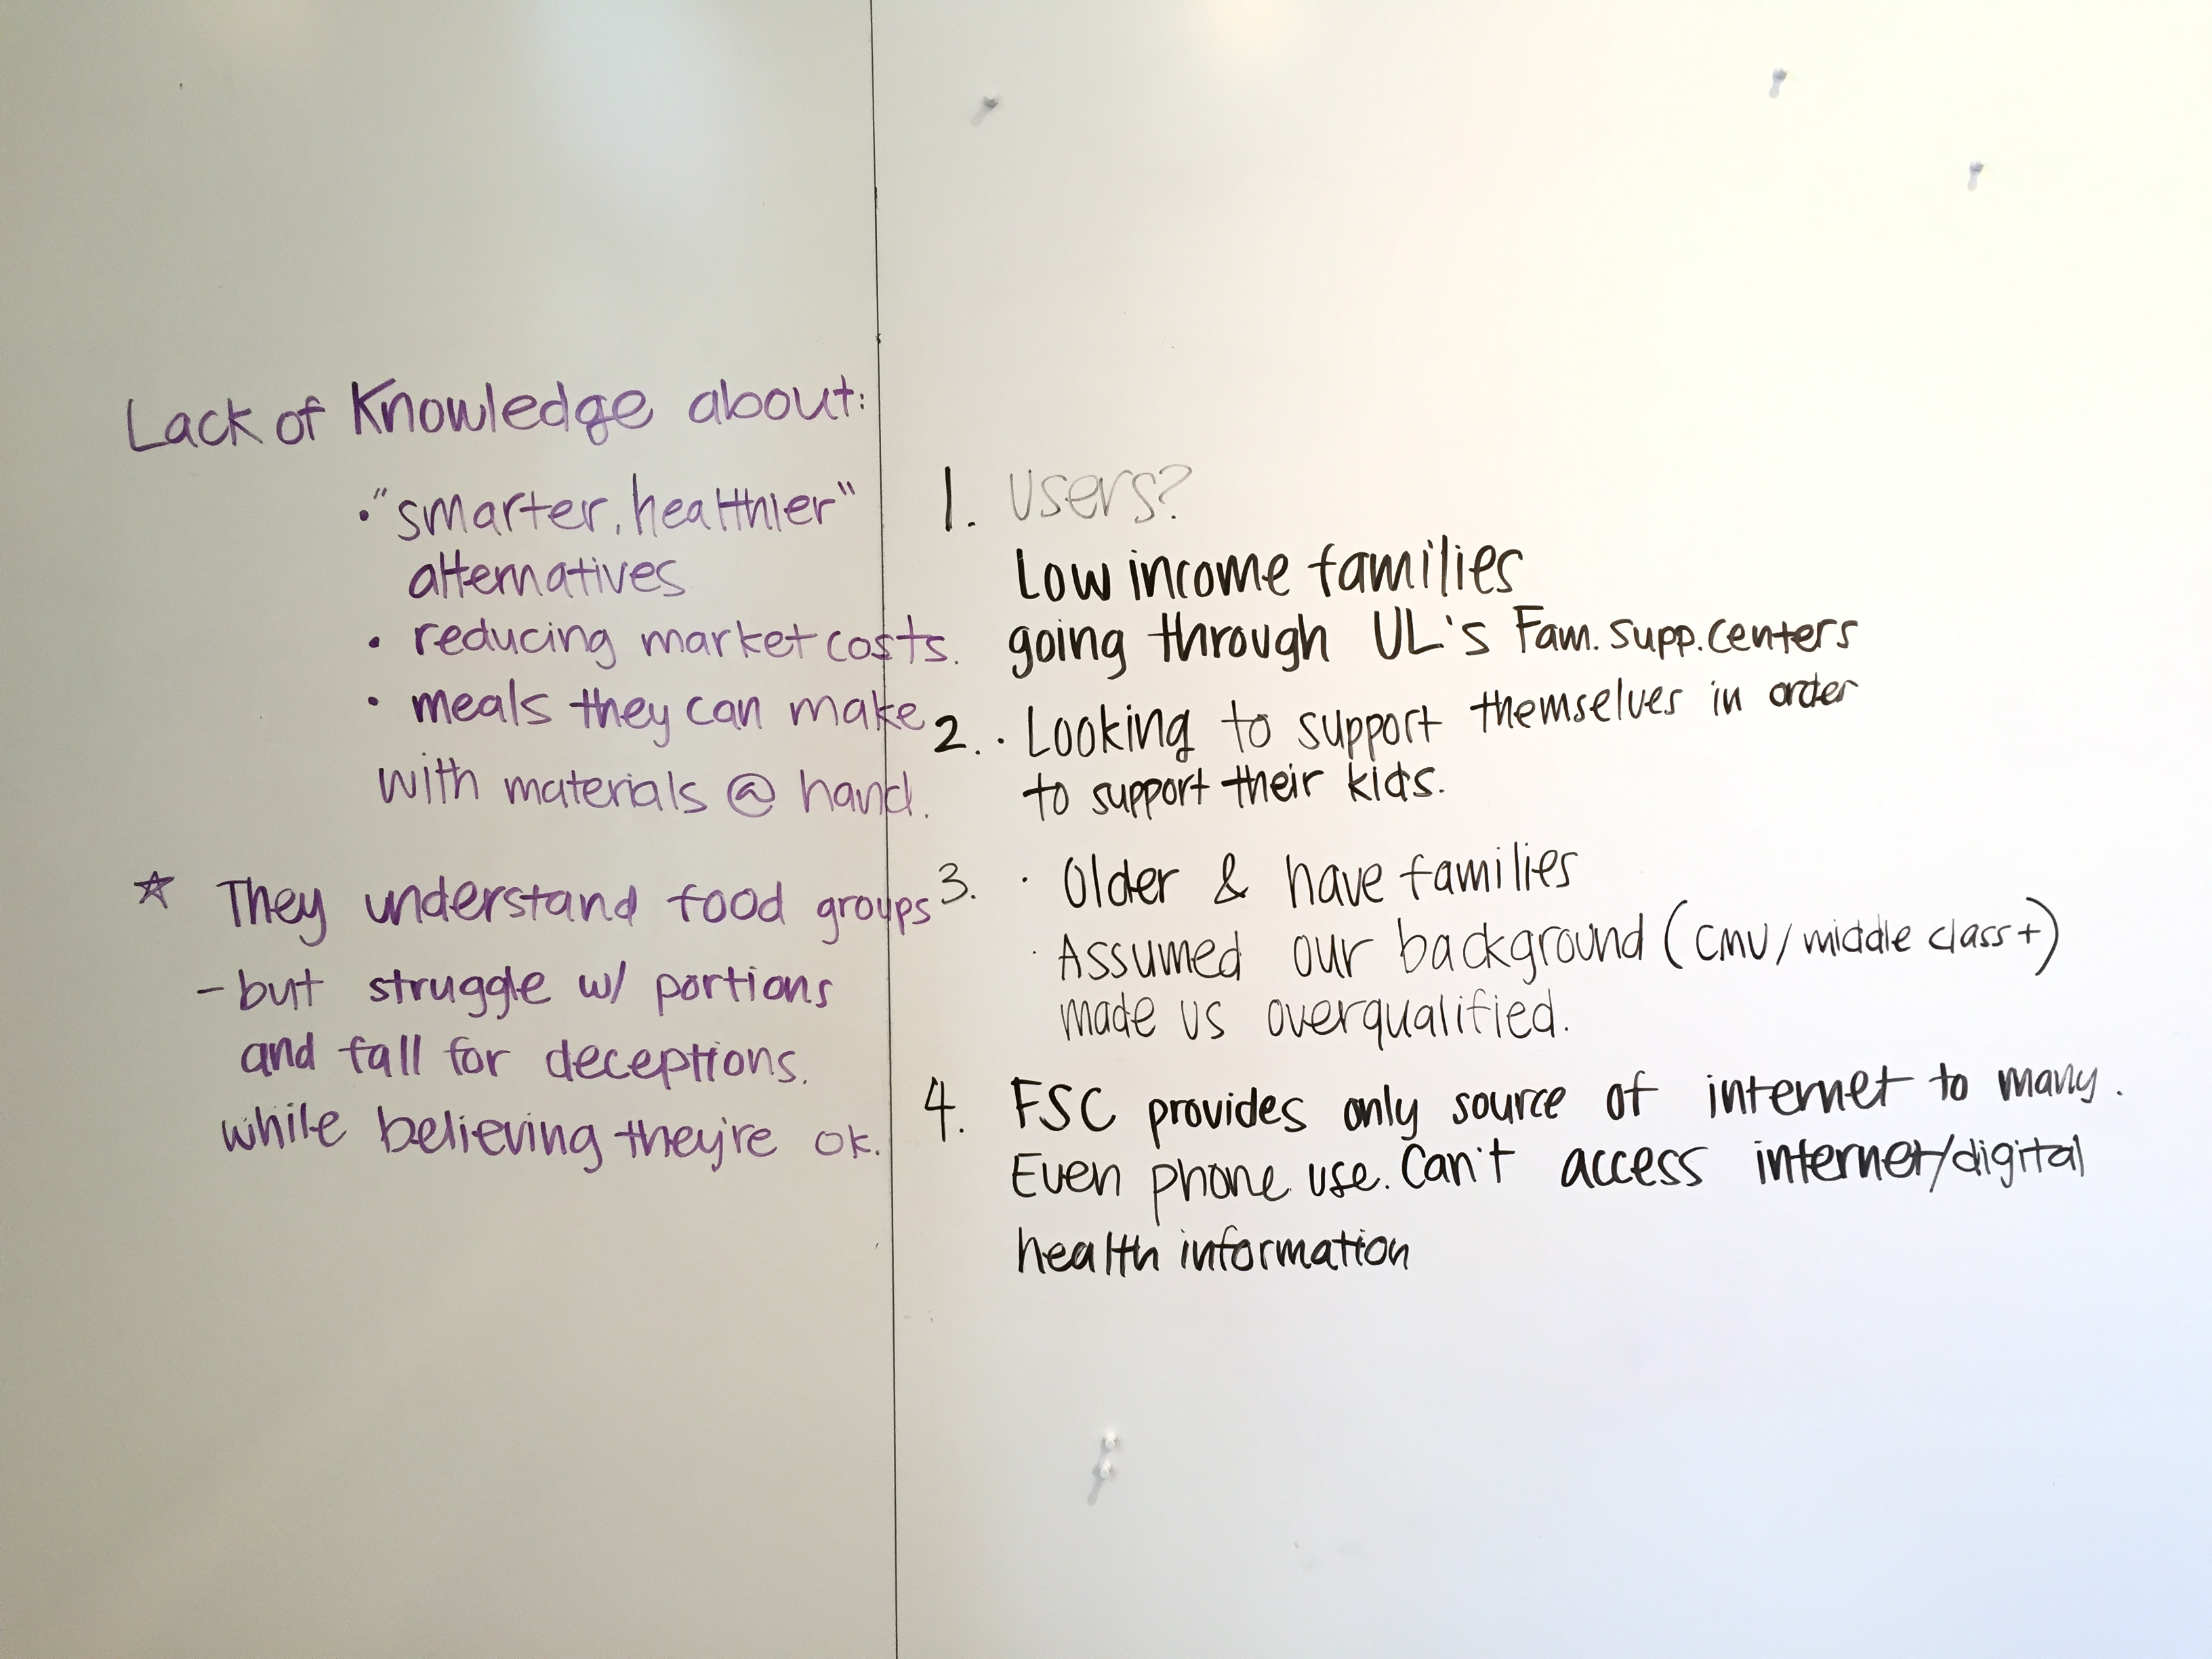 Lack of Knowledge about:
• "smarter, healthier"
alternatives
• reducing market costs.
• meals they can make
with materials @ hand.
☆ They understand food groups
- but struggle w/ portions
and fall for deceptions.
while believing they're ok.
1. users?
Low income families
going through UL's Fam. Supp. centers
2. · Looking to support themselves in order
to support their kids.
3. · Older & have families
· Assumed our background (CMU/middle class+)
made us overqualified.
4. FSC provides only source of internet to many.
Even phone use. Can't access internet/digital
health information